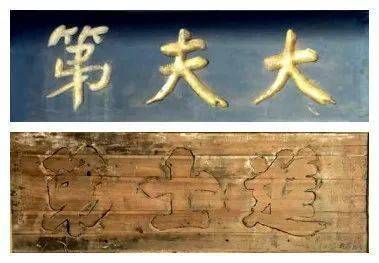 大夫第
進士第